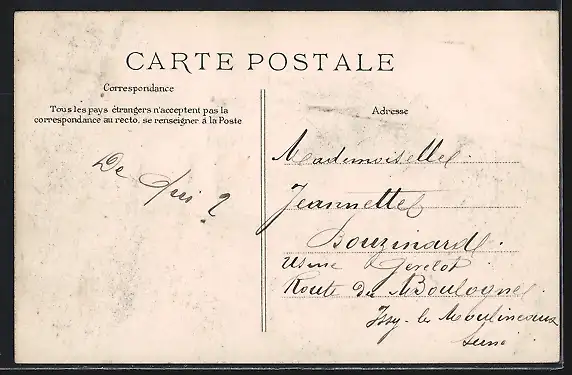 CARTE POSTALE
Correspondance
Tous les pays étrangers n'acceptent pas la
correspondance au recto. se renseigner à la Poste
Adresse
De Qui ?
Mademoiselle
Jeannette
Bouzinard
Usine Gevelot
Route de Boulogne
Issy-les Moulineaux
Seine